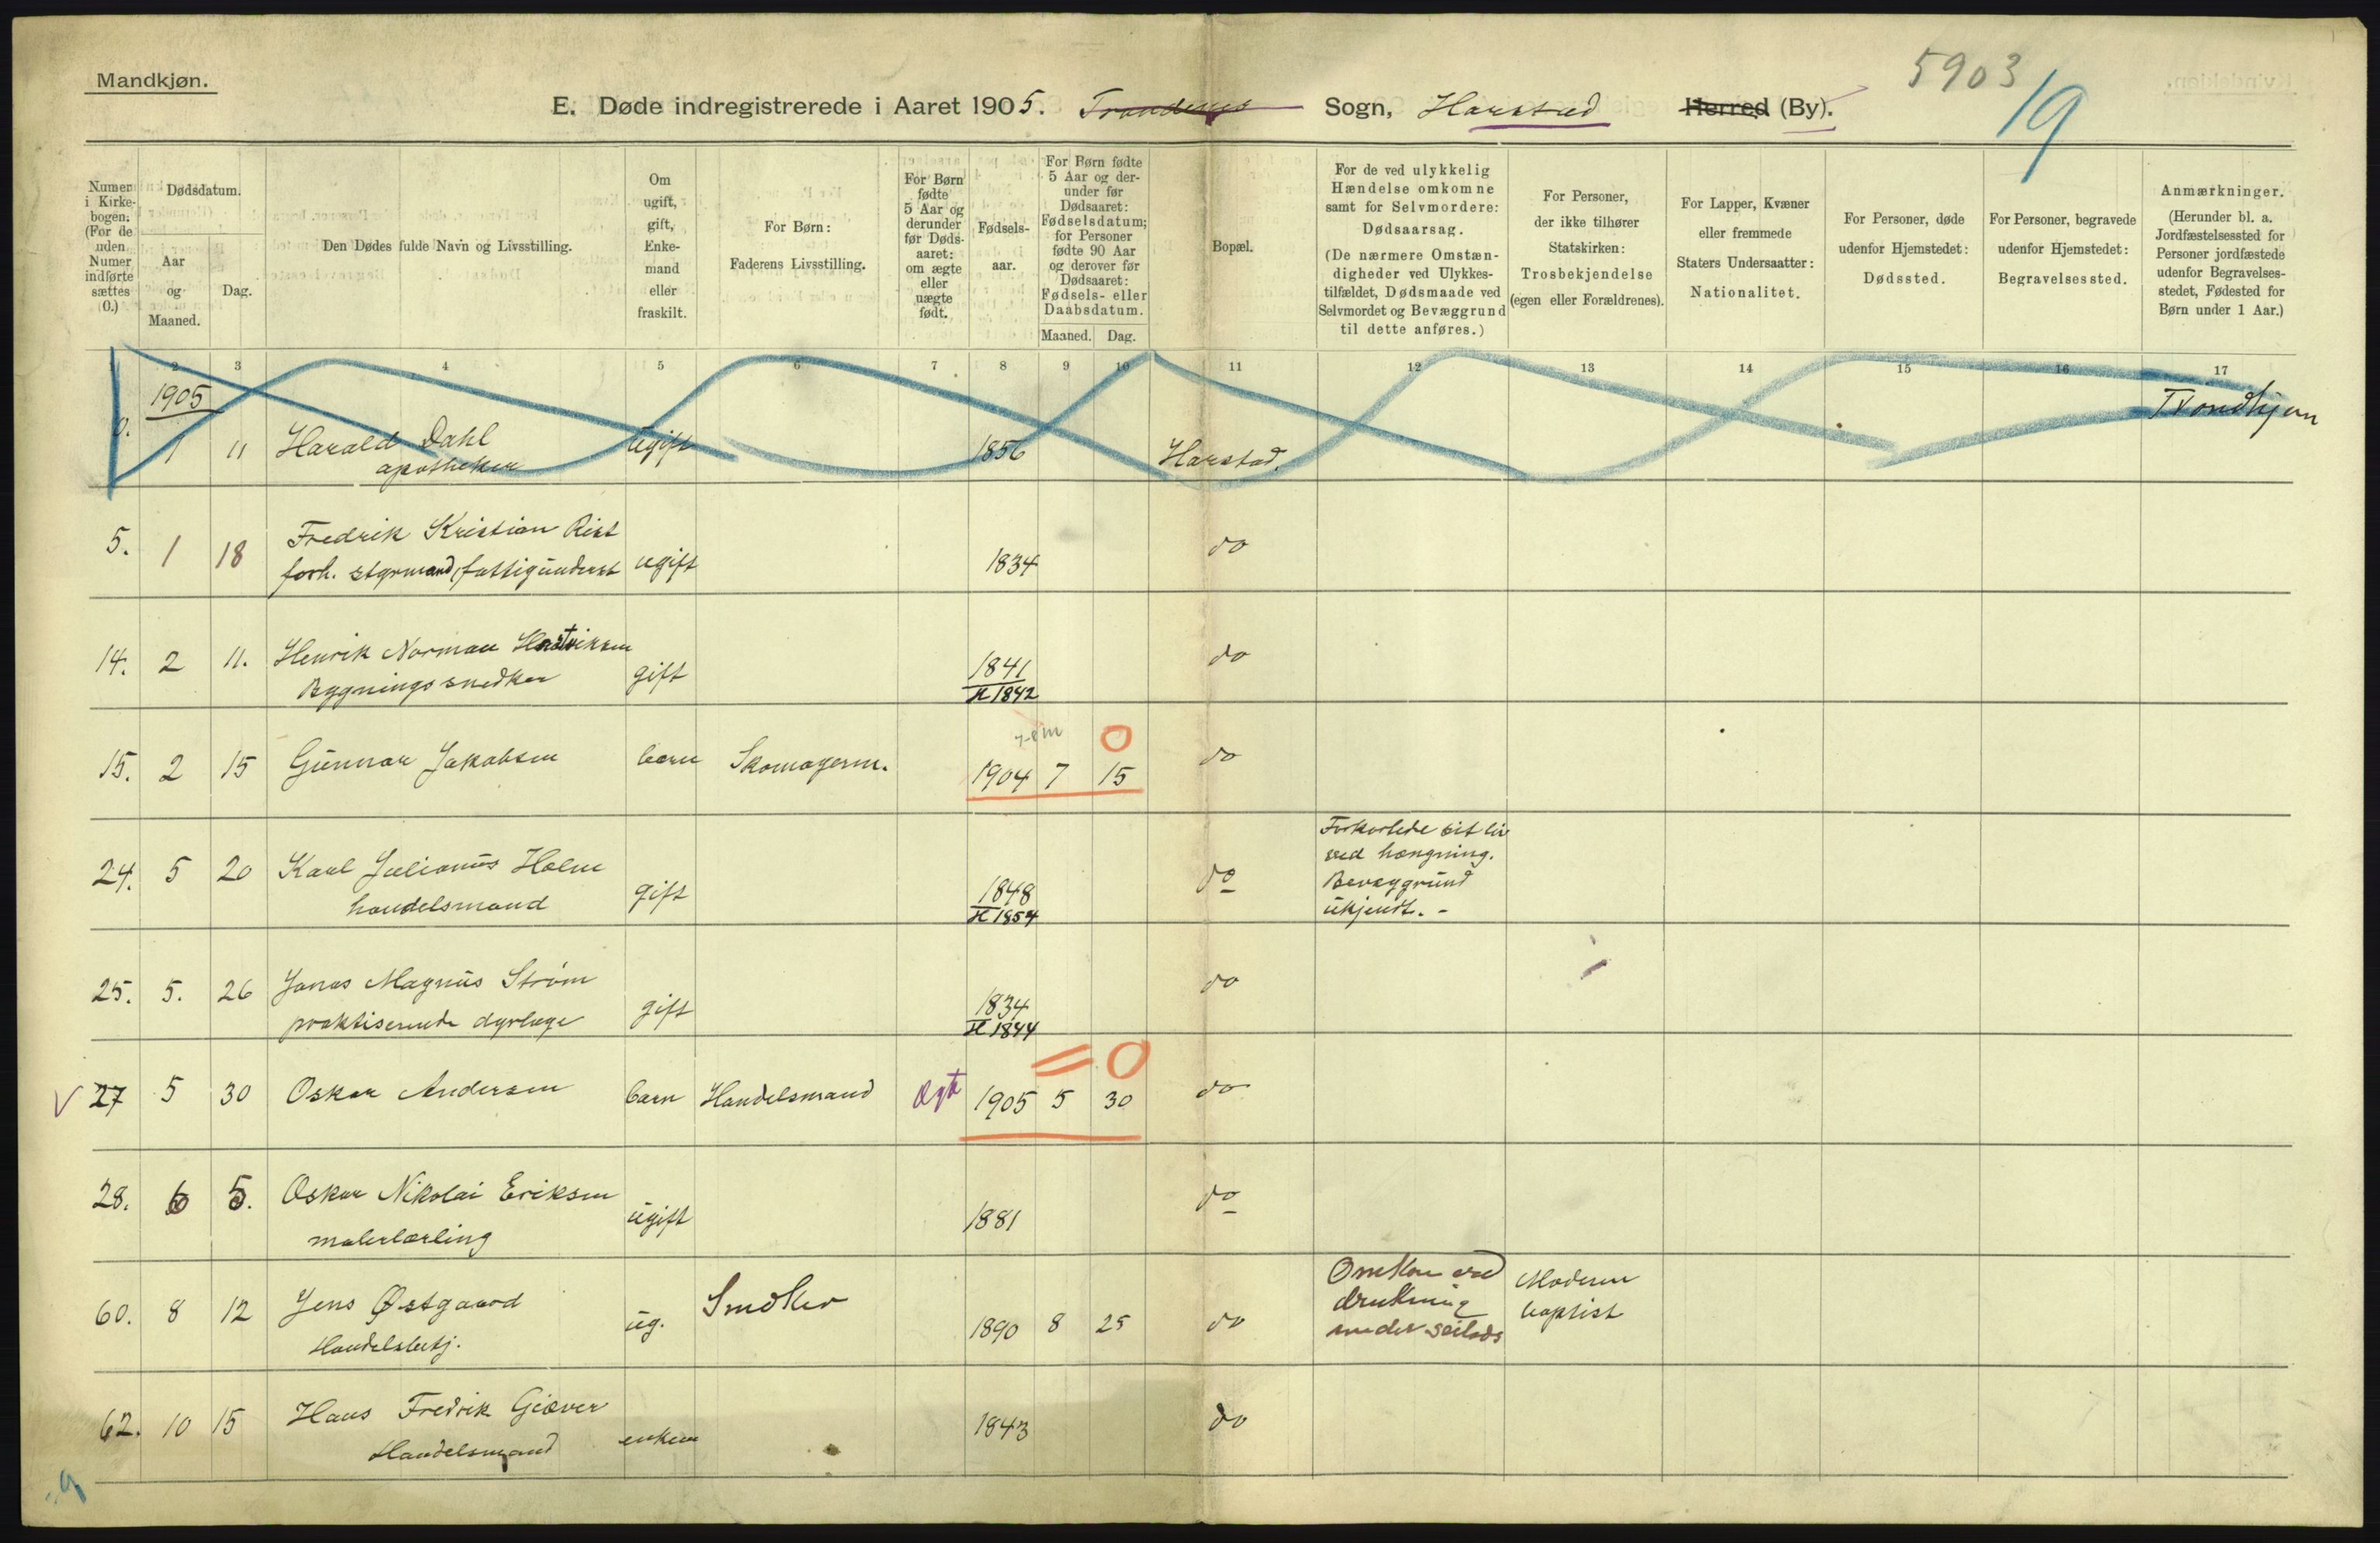 Mandkjøn.
5903
19
E. Døde indregistrerede i Aaret 1905. Trondenes Sogn, Harstad Herred (By).
Numer i Kirkebogen. (For de uden Numer indførte sættes 0.)
Dødsdatum.
Aar og Maaned.
Dag.
Den Dødes fulde Navn og Livsstilling.
Om ugift, gift, Enkemand eller fraskilt.
For Børn: Faderens Livsstilling.
For Børn fødte 5 Aar og derunder før Dødsaaret: om ægte eller uægte født.
Fødselsaar.
For Børn fødte 5 Aar og derunder før Dødsaaret: Fødselsdatum; for Personer fødte 90 Aar og derover før Dødsaaret: Fødsels- eller Daabsdatum.
Maaned. Dag.
Bopæl.
For de ved ulykkelig Hændelse omkomne samt for Selvmordere: Dødsaarsag.
(De nærmere Omstændigheder ved Ulykkestilfældet, Dødsmaade ved Selvmordet og Bevæggrund til dette anføres.)
For Personer, der ikke tilhører Statskirken: Trosbekjendelse (egen eller Forældrenes).
For Lapper, Kvæner eller fremmede Staters Undersaatter: Nationalitet.
For Personer, døde udenfor Hjemstedet: Dødssted.
For Personer, begravede udenfor Hjemstedet: Begravelsessted.
Anmærkninger.
(Herunder bl. a. Jordfæstelsessted for Personer jordfæstede udenfor Begravelsesstedet, Fødested for Børn under 1 Aar.)
2 3 4 5 6 7 8 9 10 11 12 13 14 15 16 17
1905
0. 1 11 Harald Dahl ugift 1856 Harstad. Trondhjem
apotheker
5. 1 18 Fredrik Kristian Rist ugift 1834 do
forh. styrmand, fattigunderst
14. 2 11. Henrik Norman Hartviksen gift 1841 do
Bygningssnedker H 1842
7-8 m 0
15. 2 15 Gunnar Jakobsen barn Skomagerm. 1904 7 15 do
24. 5 20 Karl Julianus Holm gift 1848 do Forkortede sit liv
handelsmand H 1854 ved hængning.
Bevæggrund
ukjendt. -
25. 5. 26 Jonas Magnus Strøm gift 1834 do
praktiserende dyrlæge H 1844
= 0
27 5 30 Oskar Andersen barn Handelsmand Ægte 1905 5 30 do
28. 6 5. Oskar Nikolai Eriksen ugift 1881 do
malerlærling
60. 8 12 Jens Østgaard ug. Snedker 1890 8 25 do Omkom ved Moderen
Handelsbetj. drukning baptist
under seilads
62. 10 15 Hans Fredrik Giæver enkem 1843 do
Handelsmand
9